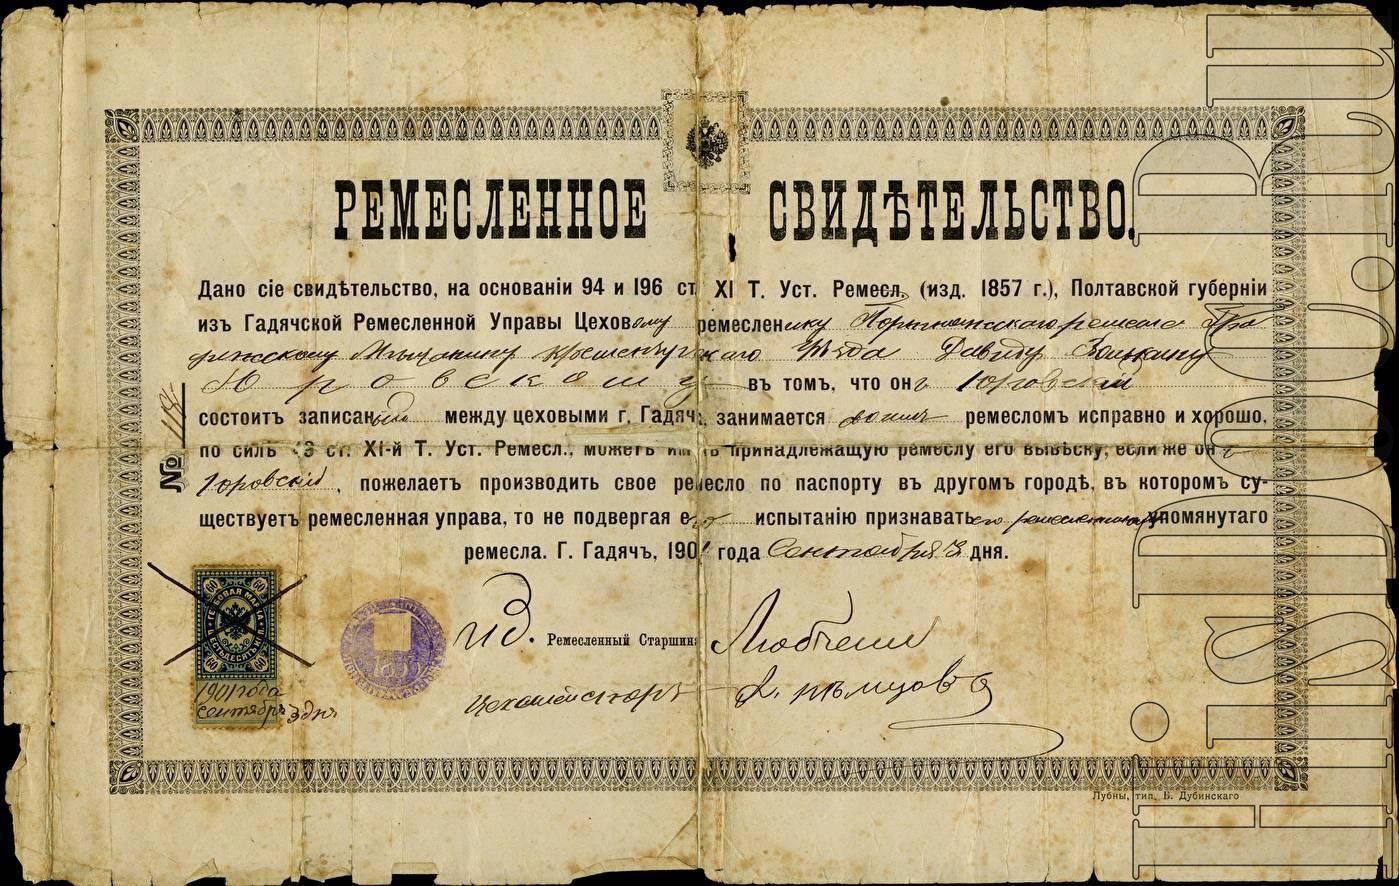 РЕМЕСЛЕННОЕ СВИДѢТЕЛЬСТВО.
Дано сіе свидѣтельство, на основаніи 94 и 196 ст XI Т. Уст. Ремесл. (изд. 1857 г.), Полтавской губерніи
изъ Гадячской Ремесленной Управы Цеховому ремесленику Портняжскаго ремесла Гра
дижскому Мѣщанину Кременчугскаго Уѣзда Давиду
Юровскому въ томъ, что онъ Юровскій
состоитъ записаннымъ между цеховыми г. Гадяч, занимается ремесломъ исправно и хорошо,
по силѣ ст. XI-й Т. Уст. Ремесл., можетъ имѣть принадлежащую ремеслу его вывѣску, если же онъ
Юровскій, пожелаетъ производить свое ремесло по паспорту въ другомъ городѣ, въ которомъ су-
ществуетъ ремесленная управа, то не подвергая его испытанію признавать его упомянутаго
ремесла. Г. Гадячъ, 1901 года Сентября 3 дня.
№
И.Д. Ремесленный Старшина
Цехмейстеръ
60 60
ГЕРБОВАЯ МАРКА
ШЕСТЬДЕСЯТЪ К.
60 60
1901 года
сентябрь 3 дня
Лубны, тип. Б. Дубинскаго
HisDoc.ru